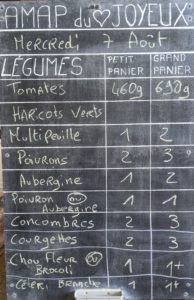 AMAP du ♡ JOYEUX
Mercredi 7 Août
LÉGUMES PETIT PANIER GRAND PANIER
Tomates 460g 690g
HARicots Verts
Multifeuille 1 2
Poivrons 2 3
Aubergine 1 2
Poivron ou Aubergine 1 1
Concombres 2 3
Courgettes 2 3
Chou Fleur ou Brocoli 1 1+
Céleri Branche 1 1+